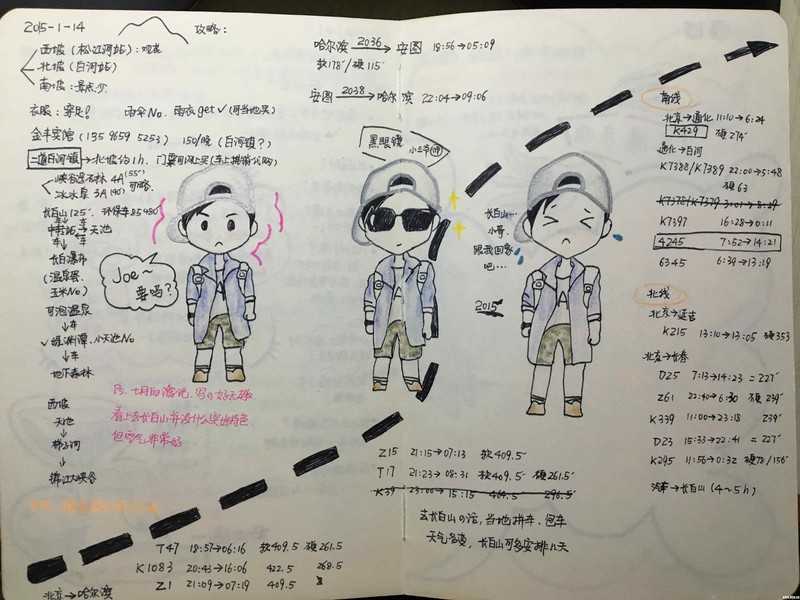 2015-1-14
攻略：
西坡（松江河站）：观光
北坡（白河站）
南坡：景点少
衣服：穿足！ 雨伞No. 雨衣get✓（可当地买）
金丰宾馆（135 9659 5253） 150/晚（白河镇？）
二道白河镇→北坡约1h. 门票可网上买
峡谷浮石林 4A（55）
冰水泉 3A（40） 可略
长白山125 环保车85
天池
车↓ 车
长白瀑布
（温泉蛋
玉米No）
可泡温泉
↓车
✓绿渊潭、小天池No
↓车
地下森林
西坡
天池
↓
梯子河
↓
锦江大峡谷
Joe~
要吗？
Ps. 七月的游记，写の好无聊
看上去长白山并没什么突出特色
但空气非常好
T47 18:57→06:16 软409.5 硬261.5
K1083 20:43→16:06 422.5 268.5
Z1 21:09→07:19 409.5
北京→哈尔滨
哈尔滨 2036→ 安图 18:56→05:09
软178/硬115
安图 2038→ 哈尔滨 22:04→09:06
黑眼镜
长白山…
小哥，
跟我回家
吧…
2015
Z15 21:15→07:13 软409.5
T17 21:23→08:31 软409.5 硬261.5
K39 23:00→15:15 464.5 296.5
去长白山の话，当地拼车、包车
天气多变，长白山可多安排几天
南线
北京→通化 11:10→6:24
K429 硬274
通化→白河
K7388/K7389 22:00→5:48
硬63
K7378/K7379 3:01→8:29
K7397 16:28→0:11
4245 7:52→14:21
6345 6:39→13:19
北线
北京→延吉
K215 13:10→13:05 硬353
北京→长春
D25 7:13→14:23 =227
Z61 22:40→6:30 硬239
K339 11:00→23:18 239
D23 15:33→22:41 =227
K295 11:56→0:32 硬78/156
汽车→长白山（4~5h）